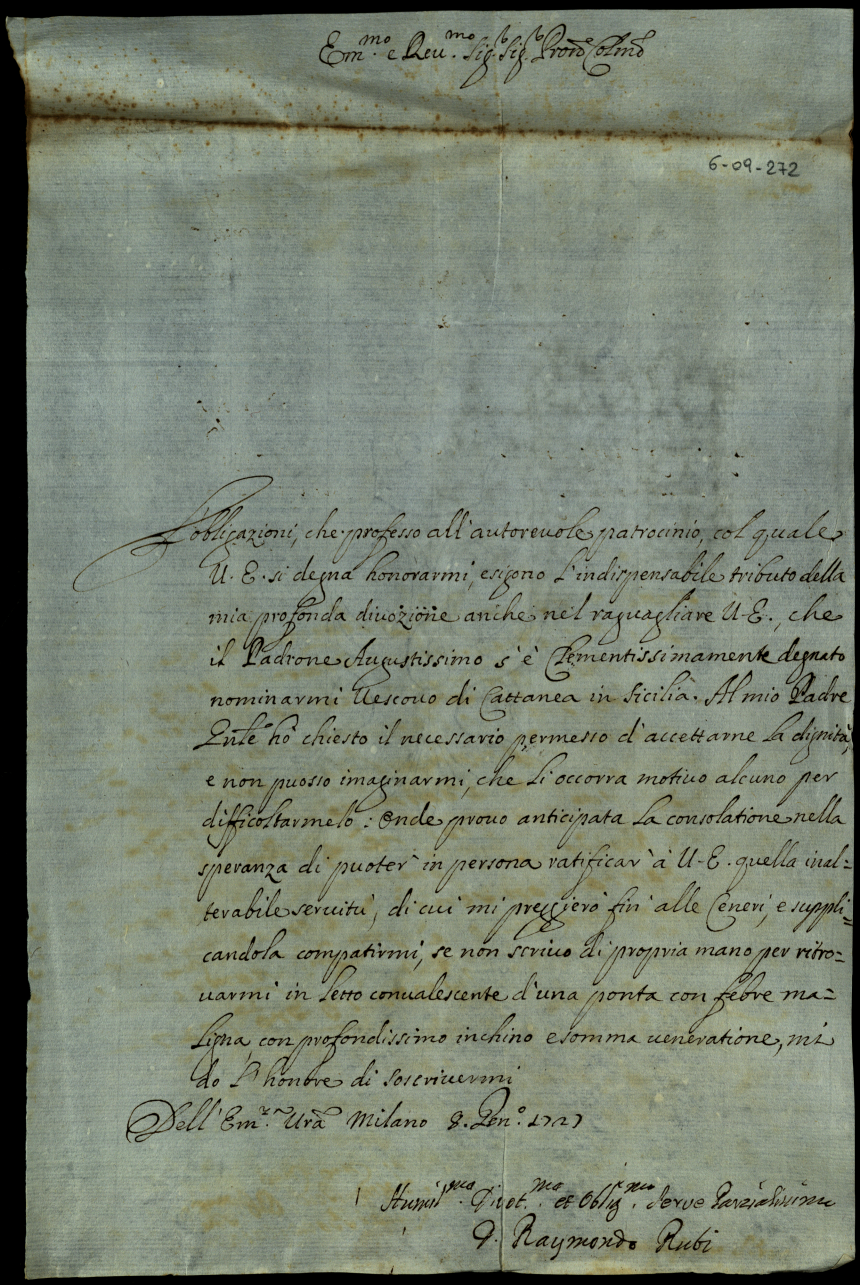 Em.mo e Reu.mo Sig.r Sig.r Pron̄e Colmō
6-09-272
L'obligazioni, che professo all'autoreuole patrocinio, col quale
U. E. si degna honorarmi, esigono l'indispensabile tributo della
mia profonda diuozione anche nel raguagliare U-E., che
il Padrone Augustissimo s'è Clementissimamente degnato
nominarmi Uescouo di Cattanea in Sicilia. Al mio Padre
Gn̄le hò chiesto il necessario permesso d'accettarne la dignità,
e non puosso imaginarmi, che li occorra motiuo alcuno per
difficoltarmelo: Onde prouo anticipata la consolatione nella
speranza di puoter in persona ratificar à U-E. quella inal=
terabile seruitù, di cui mi preggierò fin alle Ceneri, e suppli=
candola compatirmi, se non scriuo di propria mano per ritro=
uarmi in letto conualescente d'una ponta con febre ma=
ligna, con profondissimo inchino e somma ueneratione, mi
do l'honore di soscriuermi
Dell'Em.za Urā Milano 8. Gen.o 1727
Humil.mo Diuot.mo et Oblig.mo Serue Parzialissimo
D. Raymondo Rubi